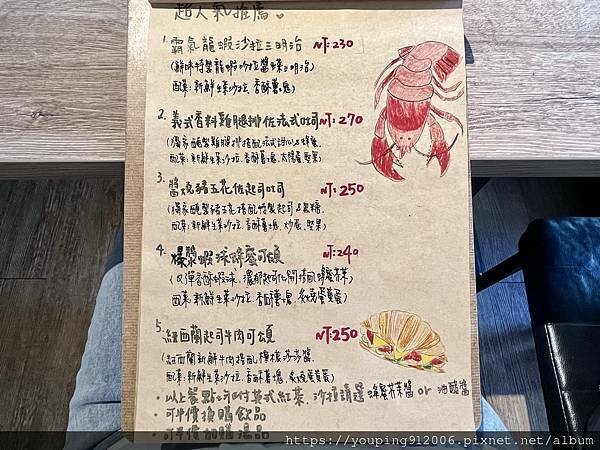 超人氣推薦
1. 霸氣龍蝦沙拉三明治 NT:230
(鮮味特製龍蝦沙拉醬 三明治)
配菜:新鮮生菜沙拉、香酥薯塊)
2. 義式香料雞腿排佐法式吐司 NT:270
(獨家醃製雞腿排搭配法式甜 蜂蜜
配菜:新鮮生菜沙拉、香酥薯塊、太陽蛋、堅果)
3. 醬燒豬五花佐起司吐司 NT:250
(獨家醃製豬五花搭配特製起司 黑糖
配菜:新鮮生菜沙拉、香酥薯塊、炒蛋、堅果)
4. 爆漿蝦球蜂蜜可頌 NT:240
(Q彈香酥蝦球、濃郁起司化開搭配蜂蜜芥茉
配菜:新鮮生菜沙拉、香酥薯塊、炙燒蛋黃蛋)
5. 紐西蘭起司牛肉可頌 NT:250
(紐西蘭新鮮牛肉搭配檸檬莎莎醬
配菜:新鮮生菜沙拉、香酥薯塊、炙燒蛋黃蛋)
·以上餐點均附英式紅茶,沙拉請選 蜂蜜芥茉醬 or 油醋醬
·可半價換購飲品
·可半價加購湯品
https://youping912006.pixnet.net/album